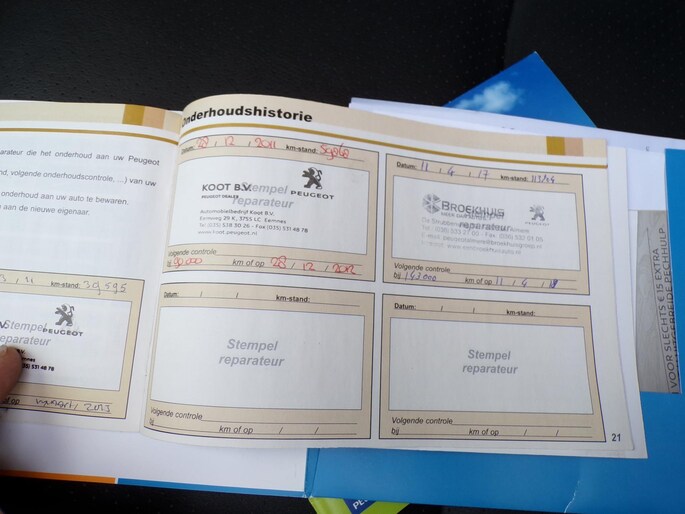 parateur die het onderhoud aan uw Peugeot
nd, volgende onderhoudscontrole, ....) van uw
onderhoud aan uw auto te bewaren.
aan de nieuwe eigenaar.
km-stand: 39595
Stempel
PEUGEOT
reparateur
km of op
Onderhoudshistorie
Datum: 28 / 12 / 2011 km-stand:
KOOT B.V.
PEUGEOT DEALER
Stempel
reparateur
PEUGEOT
Automobielbedrijf Koot B.V.
Eemweg 29 K, 3755 LC Eemnes
www.koot.peugeot.nl
Volgende controle
bij 90.000 km of op 28 / 12 / 2012
Datum: 11 / 4 / 17 km-stand:
BROEKHUIS
Stempel
reparateur
PEUGEOT
Volgende controle
bij 143.000 km of op 11 / 4 / 18
Datum: / / km-stand:
Stempel
reparateur
Volgende controle
bij km of op / /
Datum: / / km-stand:
Stempel
reparateur
Volgende controle
bij km of op / /
21
VOOR SLECHTS € 15 EXTRA
UITGEBREIDE PECHHULP